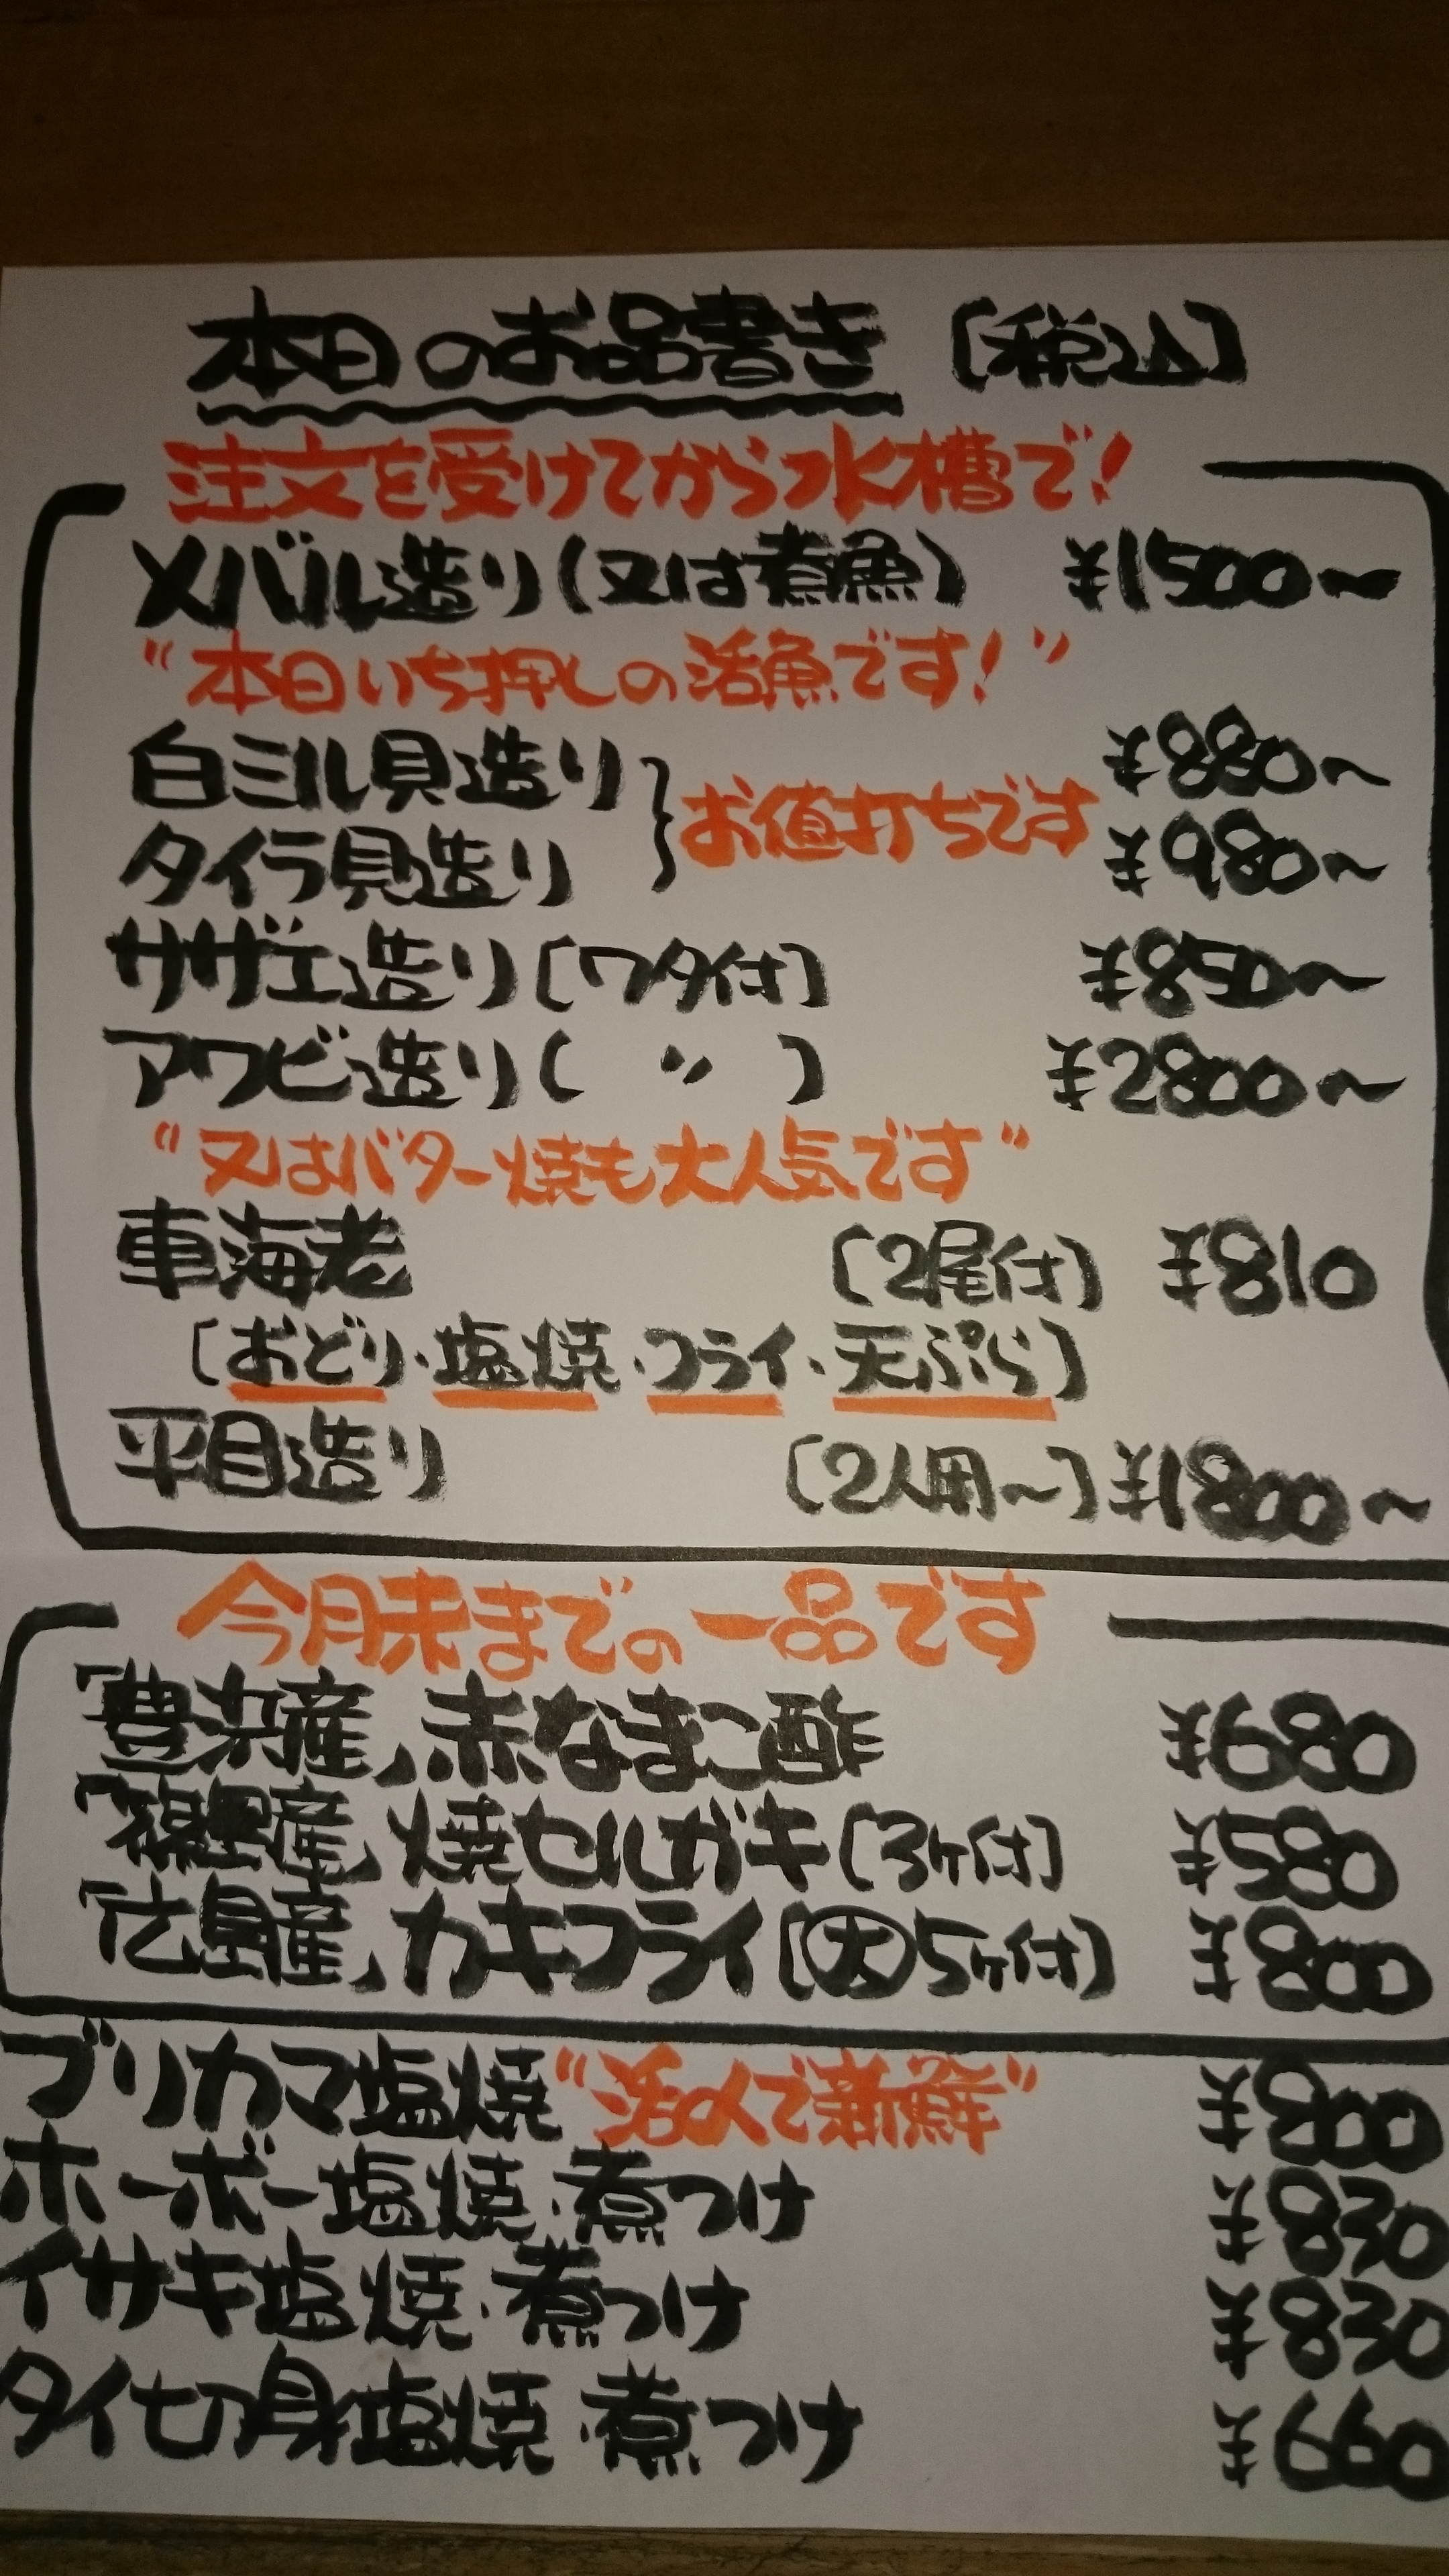 本日のお品書き [税込]
注文を受けてから水槽で!
メバル造り(又は煮魚) ¥1500〜
"本日いち押しの活魚です!"
白ミル貝造り ¥880〜
お値打ちです
タイラ貝造り ¥980〜
サザエ造り[ワタ付] ¥850〜
アワビ造り[ 〃 ] ¥2800〜
"又はバター焼も大人気です"
車海老 [2尾付] ¥810
[おどり·塩焼·フライ·天ぷら]
平目造り [2人用〜] ¥1800〜
今月末までの一品です
「豊浜産」赤なまこ酢 ¥980
産」焼セルガキ[3ヶ付] ¥580
「広島産」カキフライ[大5ヶ付] ¥880
ブリカマ塩焼"活〆で新鮮" ¥800
ホーボー塩焼·煮つけ ¥830
イサキ塩焼·煮つけ ¥830
タイ切身塩焼·煮つけ ¥990